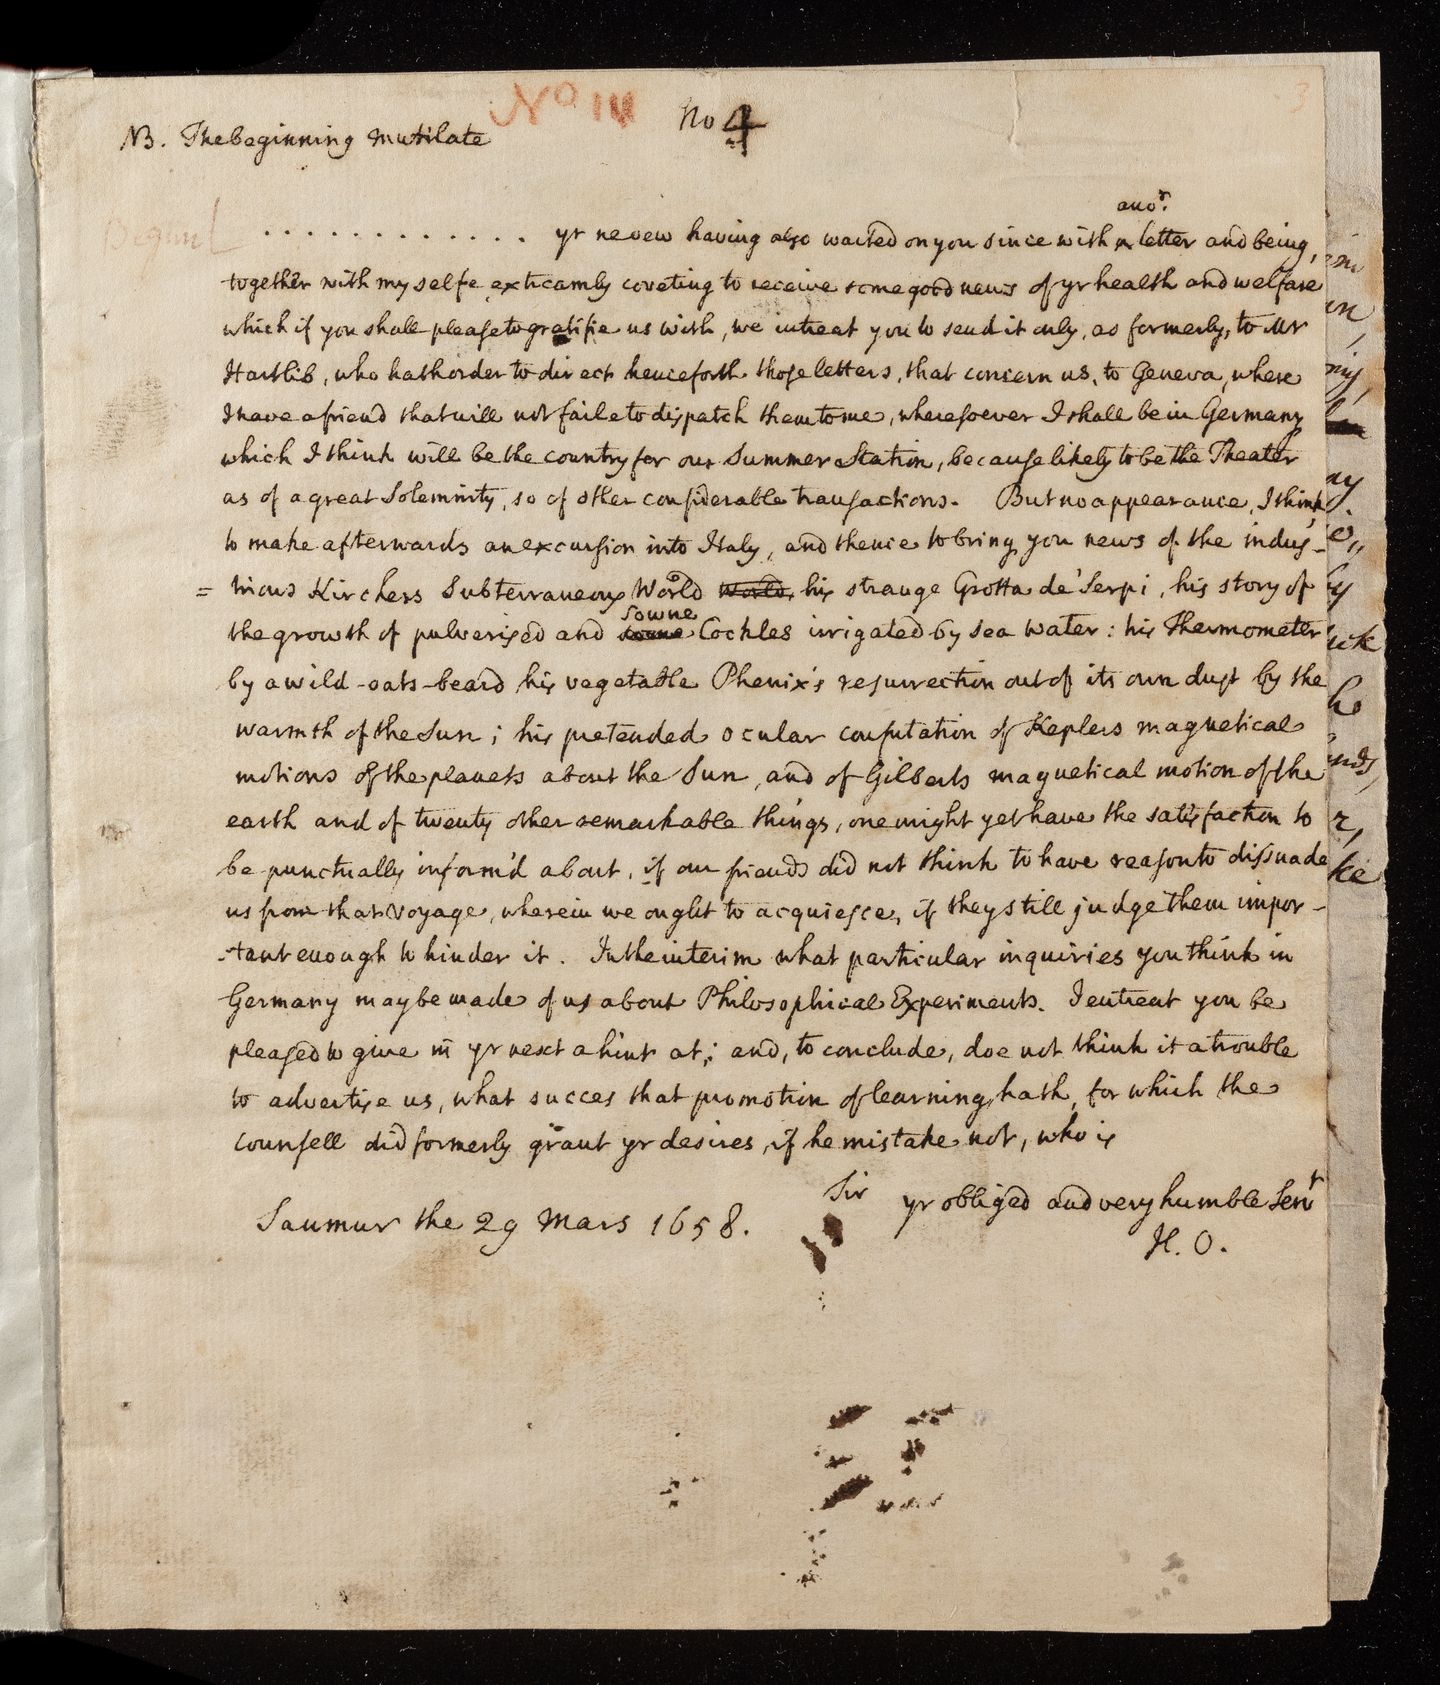 No III No 4
NB. The beginning mutilate
3
anor.
. . . . . . . . . . . . . yr nevew having also waited on you since with a letter and being,
together with my selfe extreamly coveting to receive some good news of yr health and welfare
which if you shall please to gratifie us with, we intreat you to send it only, as formerly, to Mr
Hartlib, who hath order to direct henceforth those letters, that concern us, to Geneva, where
I have a friend that will not faile to dispatch them to me, wheresoever I shall be in Germany
which I think will be the country for our Summer Station, because likely to be the Theater
as of a great Solemnity, so of other considerable transactions. But no appearance, I think
to make afterwards an excursion into Italy, and thence to bring you news of the indus-
= trious Kirchers Subterraneous World World, his strange Grotta de' Serpi, his story of
sowne
the growth of pulverised and sowne Cockles irrigated by sea water: his Thermometer
by a wild-oats-beard his vegetable Phenix's resurrection out of its own dust by the
warmth of the Sun; his pretended ocular confutation of Keplers magnetical
motions of the planets about the Sun, and of Gilberts magnetical motion of the
earth and of twenty other remarkable things, one might yet have the satisfaction to
be punctually inform'd about, if our friends did not think to have reason to dissuade
us from that voyage, wherein we ought to acquiesce, if they still judge them impor-
-tant enough to hinder it. In the interim what particular inquiries you think in
Germany may be made of us about Philosophical Experiments. I entreat you be
pleased to give in yr next a hint at; and, to conclude, doe not think it a trouble
to advertise us, what succes that promotion of learning hath, for which the
counsell did formerly grant yr desires, if he mistake not, who is
Sir yr obliged and very humble Servt
Saumur the 29 Mars 1658.
H. O.